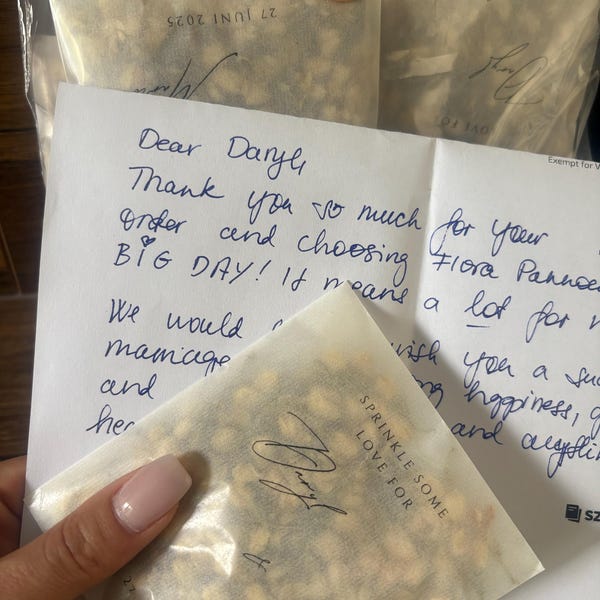 27 JUNI 2025
LOVE FO
Exempt for V
Dear Daryl,
Thank you so much for your
order and choosing Flora Pannoe
BIG DAY! It means a lot for
We would wish you a suc
marriage happiness,
and and
hea
SPRINKLE SOME
LOVE FOR
Daryl
&
27
SZ